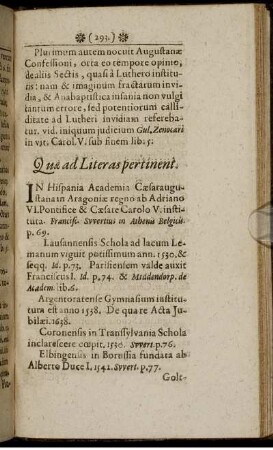 ❋ (291.) ❋
Plurimum autem nocuit Augustanæ
Confessioni, orta eo tempore opinio,
de aliis Sectis, quasi à Luthero institu-
tis: nam & imaginum fractarum invi-
dia, & Anabaptistica insania non vulgi
tantum errore, sed potentiorum calli-
ditate ad Lutheri invidiam refereba-
tur. vid. iniquum judicium Gul. Zenocari
in vit. Carol. V. sub finem lib. 5:
Quæ ad Literas pertinent.
IN Hispania Academia Cæsaraugu-
stana in Aragoniæ regno ab Adriano
VI. Pontifice & Cæsare Carolo V. insti-
tuta. Francisc. Svvertus in Athenis Belgicis.
p. 69.
Lausannensis Schola ad lacum Le-
manum viguit potissimum ann. 1530, &
seqq. Id. p. 73. Parisiensem valde auxit
Franciscus I. Id. p. 74. & Middendorp. de
Academ. lib. 6.
Argentoratense Gymnasium institu-
tum est anno 1538. De qua re Acta Ju-
bilæi. 1638.
Coronensis in Transsylvania Schola
inclarescere cœpit. 1530. Svvert. p. 76.
Elbingensis in Borussia fundata ab
Alberto Duce I. 1542. Svvert. p. 77.
Golt-